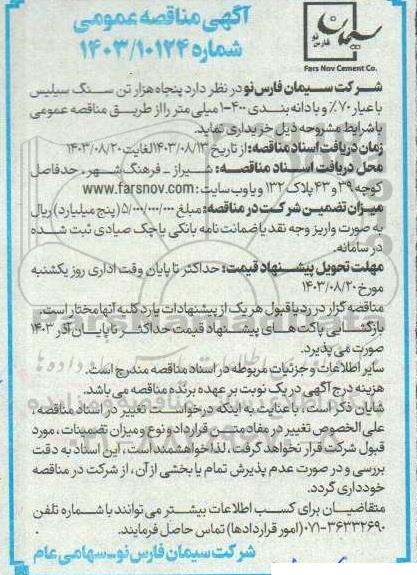 آگهی مناقصه عمومی
شماره ۱۴۰۳/۱۰۱۲۴
سیمان
فارس نو
Fars Nov Cement Co.
شرکت سیمان فارس نو در نظر دارد پنجاه هزار تن سنگ سیلیس
با عیار ۷۰٪ و با دانه بندی ۴۰۰-۱ میلی متر را از طریق مناقصه عمومی
با شرایط مشروحه ذیل خریداری نماید.
زمان دریافت اسناد مناقصه: از تاریخ ۱۴۰۳/۰۸/۱۳ لغایت ۱۴۰۳/۰۸/۲۰
محل دریافت اسناد مناقصه: شیراز - فرهنگ شهر، حدفاصل
کوچه ۳۹ و ۴۳ پلاک ۱۳۲ و یا وب سایت: www.farsnov.com
میزان تضمین شرکت در مناقصه: مبلغ ۵/۰۰۰/۰۰۰/۰۰۰ (پنج میلیارد) ریال
به صورت واریز وجه نقد یا ضمانت نامه بانکی یا چک صیادی ثبت شده
در سامانه.
مهلت تحویل پیشنهاد قیمت: حداکثر تا پایان وقت اداری روز یکشنبه
مورخ ۱۴۰۳/۰۸/۲۰
مناقصه گزار در رد یا قبول هر یک از پیشنهادات یا رد کلیه آنها مختار است.
بازگشایی پاکت های پیشنهاد قیمت حداکثر تا پایان آذر ۱۴۰۳
صورت می پذیرد.
سایر اطلاعات و جزئیات مربوطه در اسناد مناقصه مندرج است.
هزینه درج آگهی در یک نوبت بر عهده برنده مناقصه می باشد.
شایان ذکر است، با عنایت به اینکه درخواست تغییر در اسناد مناقصه،
علی الخصوص تغییر در مفاد متن قرارداد و نوع و میزان تضمینات، مورد
قبول شرکت قرار نخواهد گرفت، لذا خواهشمند است، این اسناد به دقت
بررسی و در صورت عدم پذیرش تمام یا بخشی از آن، از شرکت در مناقصه
خودداری گردد.
متقاضیان برای کسب اطلاعات بیشتر می توانند با شماره تلفن
۰۷۱-۳۶۳۳۲۶۹۰ (امور قراردادها) تماس حاصل فرمایند.
شرکت سیمان فارس نو - سهامی عام